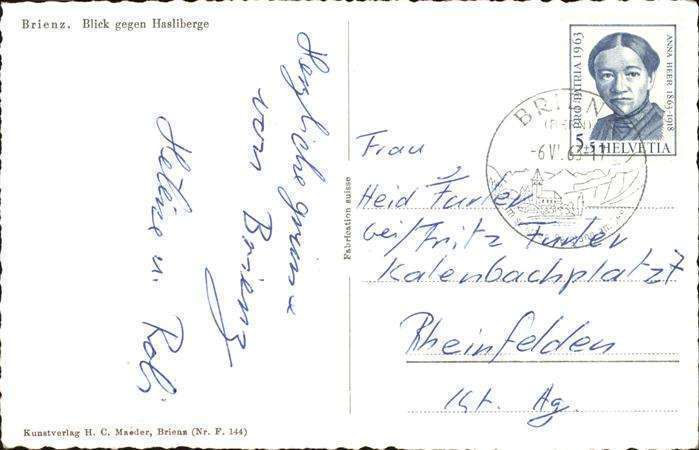 Brienz. Blick gegen Hasliberge
Herzliche grüsse
von Brienz
Helene u. Robi
Kunstverlag H. C. Maeder, Brienz (Nr. F. 144)
Fabrication suisse
PRO PATRIA 1963
ANNA HEER 1863-1918
5+5 HELVETIA
BRIENZ
(BERN)
-6.VI.63-17
Frau
Heid Furter
bei/Fritz Furter
Kalenbachplatz 7
Rheinfelden
Kt. Ag.